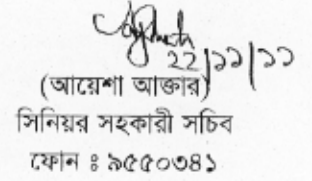 ২২|১১|১১
(আয়েশা আক্তার)
সিনিয়র সহকারী সচিব
ফোন ঃ ৯৫৫০৩৪১